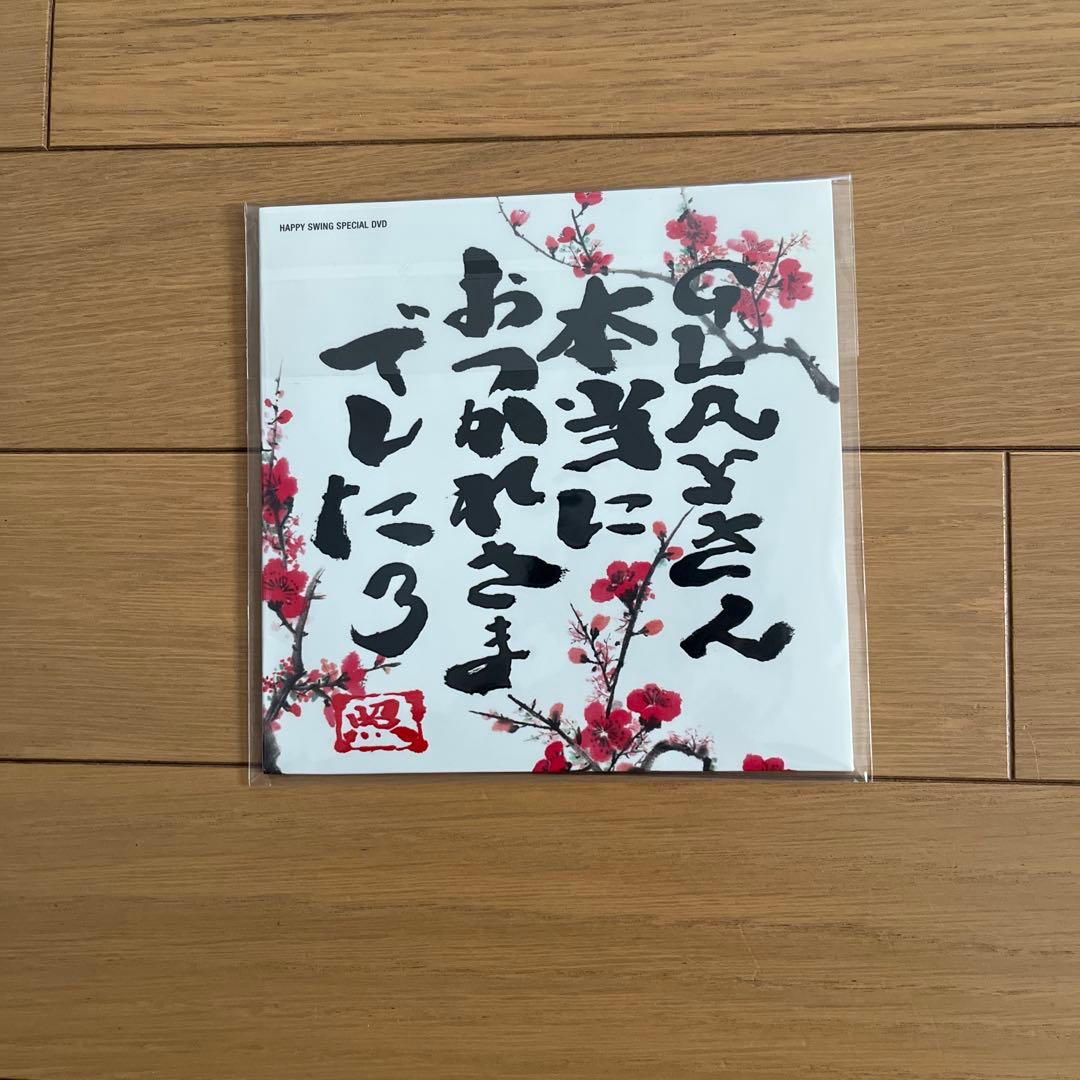 HAPPY SWING SPECIAL DVD
GLAYさん
本当に
おつかれさま
でした3
照